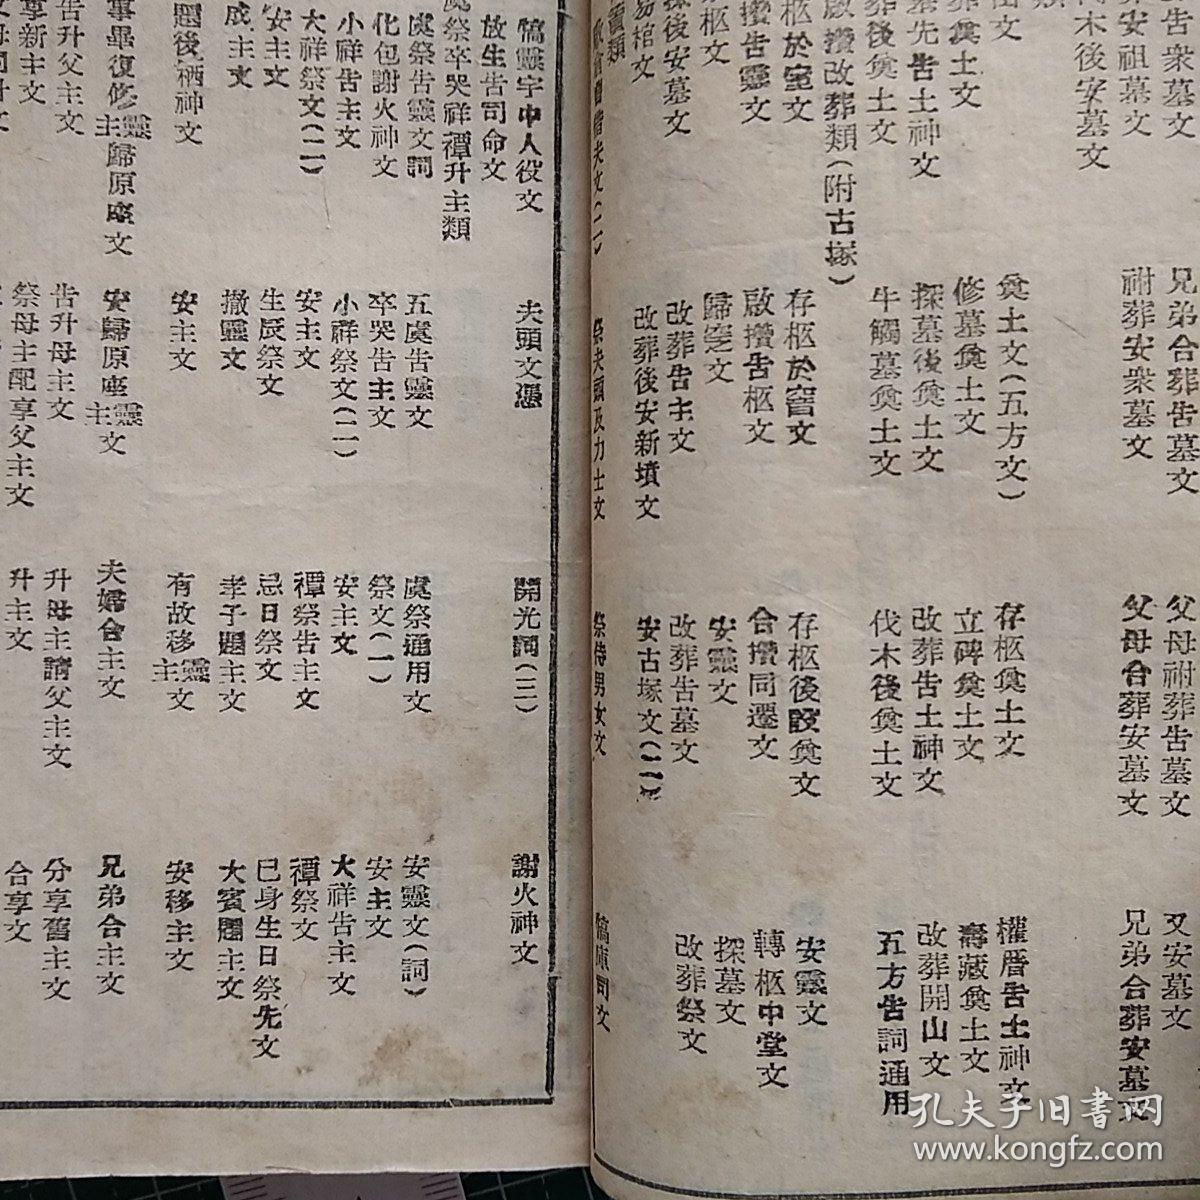 告衆墓文
兄弟合葬告墓文
父母祔葬告墓文
又安墓文
安祖墓文
祔葬安衆墓文
父母合葬安墓文
兄弟合葬安墓文
伐木後安墓文
奠土文(五方文)
存柩奠土文
權厝告土神文
葬奠土文
修墓奠土文
立碑奠土文
壽藏奠土文
墓先告土神文
探墓後奠土文
改葬告土神文
改葬開山文
葬後奠土文
牛觸墓奠土文
伐木後奠土文
五方告詞通用
啟攢改葬類(附古塚)
柩於室文
存柩於窨文
存柩後設奠文
安靈文
啟攢告靈文
啟攢告柩文
合攢同遷文
轉柩中堂文
柩文
歸窆文
安靈文
探墓文
探後安墓文
改葬告主文
改葬告墓文
改葬祭文
易棺文
改葬後安新墳文
安古塚文(二)
祭夫頭及力士文
祭侍男女文
犒庫司文
犒靈宇中人役文
夫頭文憑
開光詞(三)
謝火神文
放生告司命文
虞祭卒哭祥禫升主類
虞祭告靈文詞
五虞告靈文
虞祭通用文
安靈文(詞)
化包謝火神文
卒哭告主文
祭文(一)
安主文
小祥告主文
小祥祭文(二)
安主文
大祥告主文
大祥祭文(二)
安主文
禫祭告主文
禫祭文
安主文
生辰祭文
忌日祭文
巳身生日祭先文
成主文
撤靈文
孝子題主文
大賓題主文
題後栖神文
安主文
有故移靈主文
安移主文
事畢復修靈主歸原座文
安歸原座靈主文
夫婦合主文
兄弟合主文
告升父主文
告升母主文
升母主請父主文
分享舊主文
享新主文
祭母主配享父主文
升主文
合享文
孔夫子旧書网
www.kongfz.com